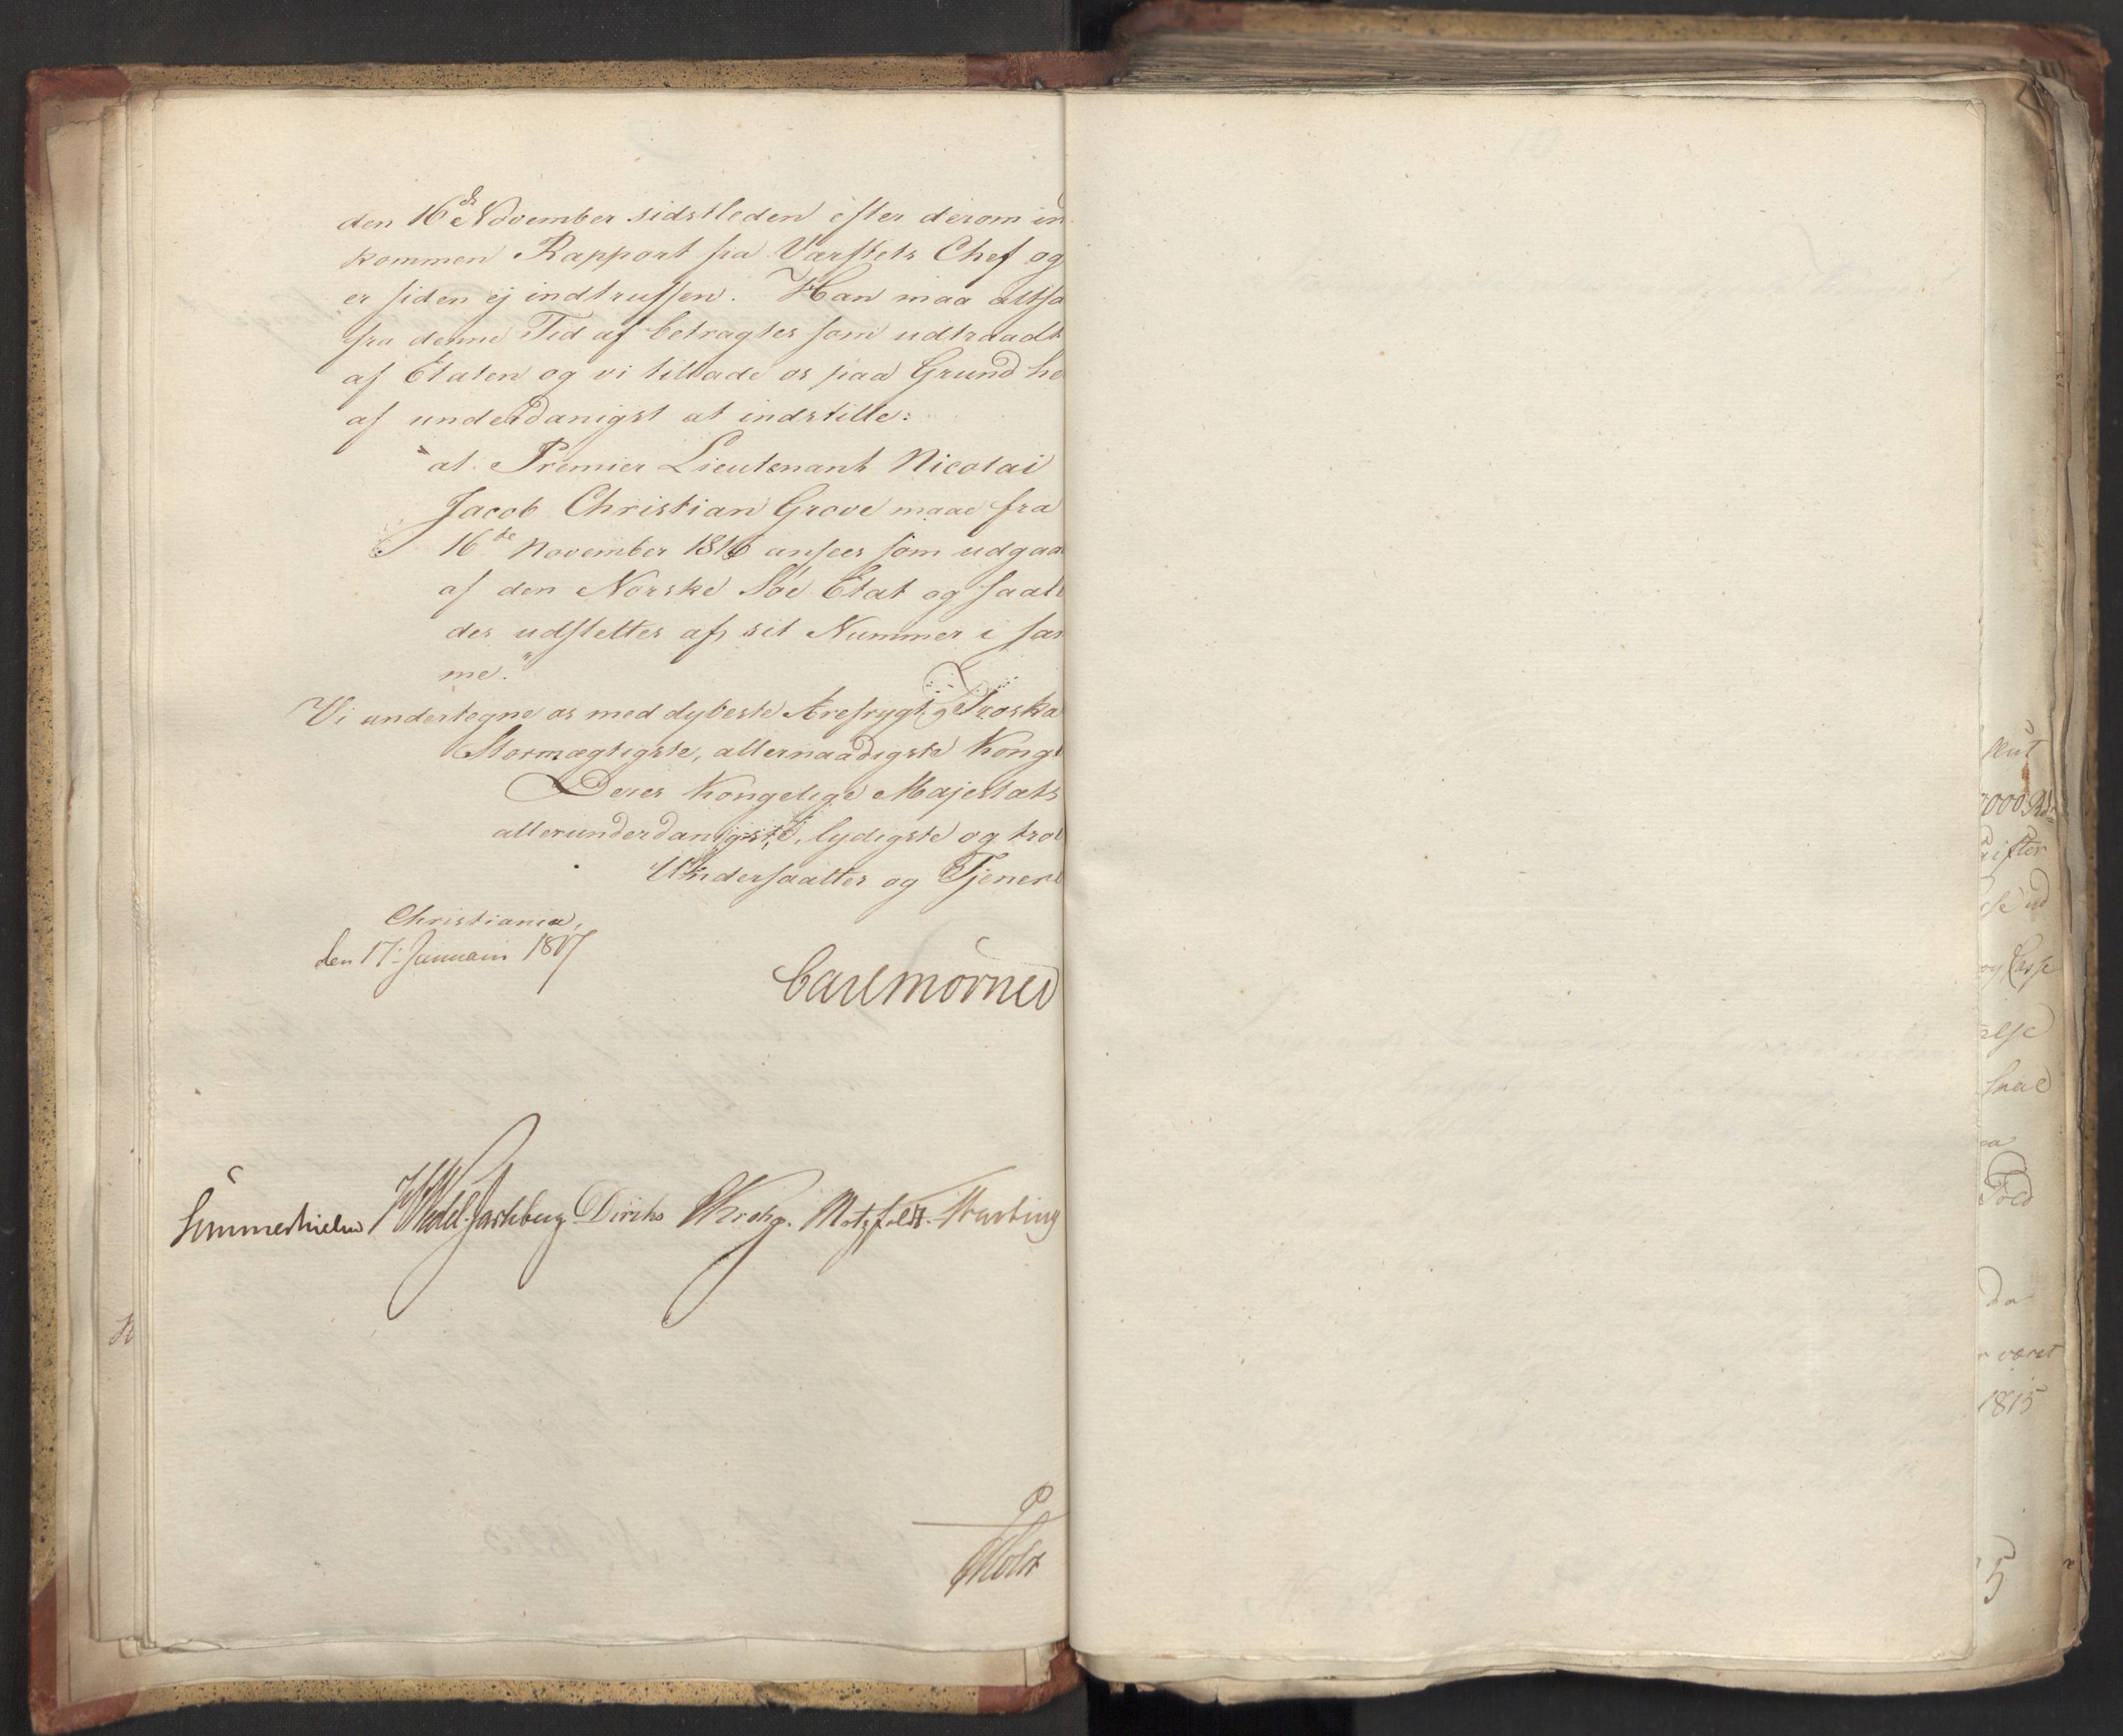 den 16de November sidstleden efter derom in
kommen Rapport fra Værftets Chef og
er siden ej indtruffen. Han maa altsa
fra denne Tid af betragtes som udtraadt
af Etaten og vi tillade os paa Grund he
af underdanigst at indstille:
"at Premier Lieutenant Nicolai
Jacob Christian Grove maae fra
16de November 1816 ansees som udgaa
af den Norske Søe Etat og saale
des udslettes af sit Nummer i sam
me."
Vi undertegne os med dybeste Ærefrygt og Troska
Stormægtigste, allernaadigste Konge
Deres Kongelige Majestæts
allerunderdanigste, lydigste og troe
Undersaatter og Tjenere
Christiania,
den 17: Januarii 1817
Carl Mörner
Sommerhielm FWedel-Jarlsberg Diriks CKrohg. Motzfeldt. Hartung
P
Holst
Kut
7000 Rd
rifter
else ud
og Casse
else
skal
paa
Told
da
r været
1815
5